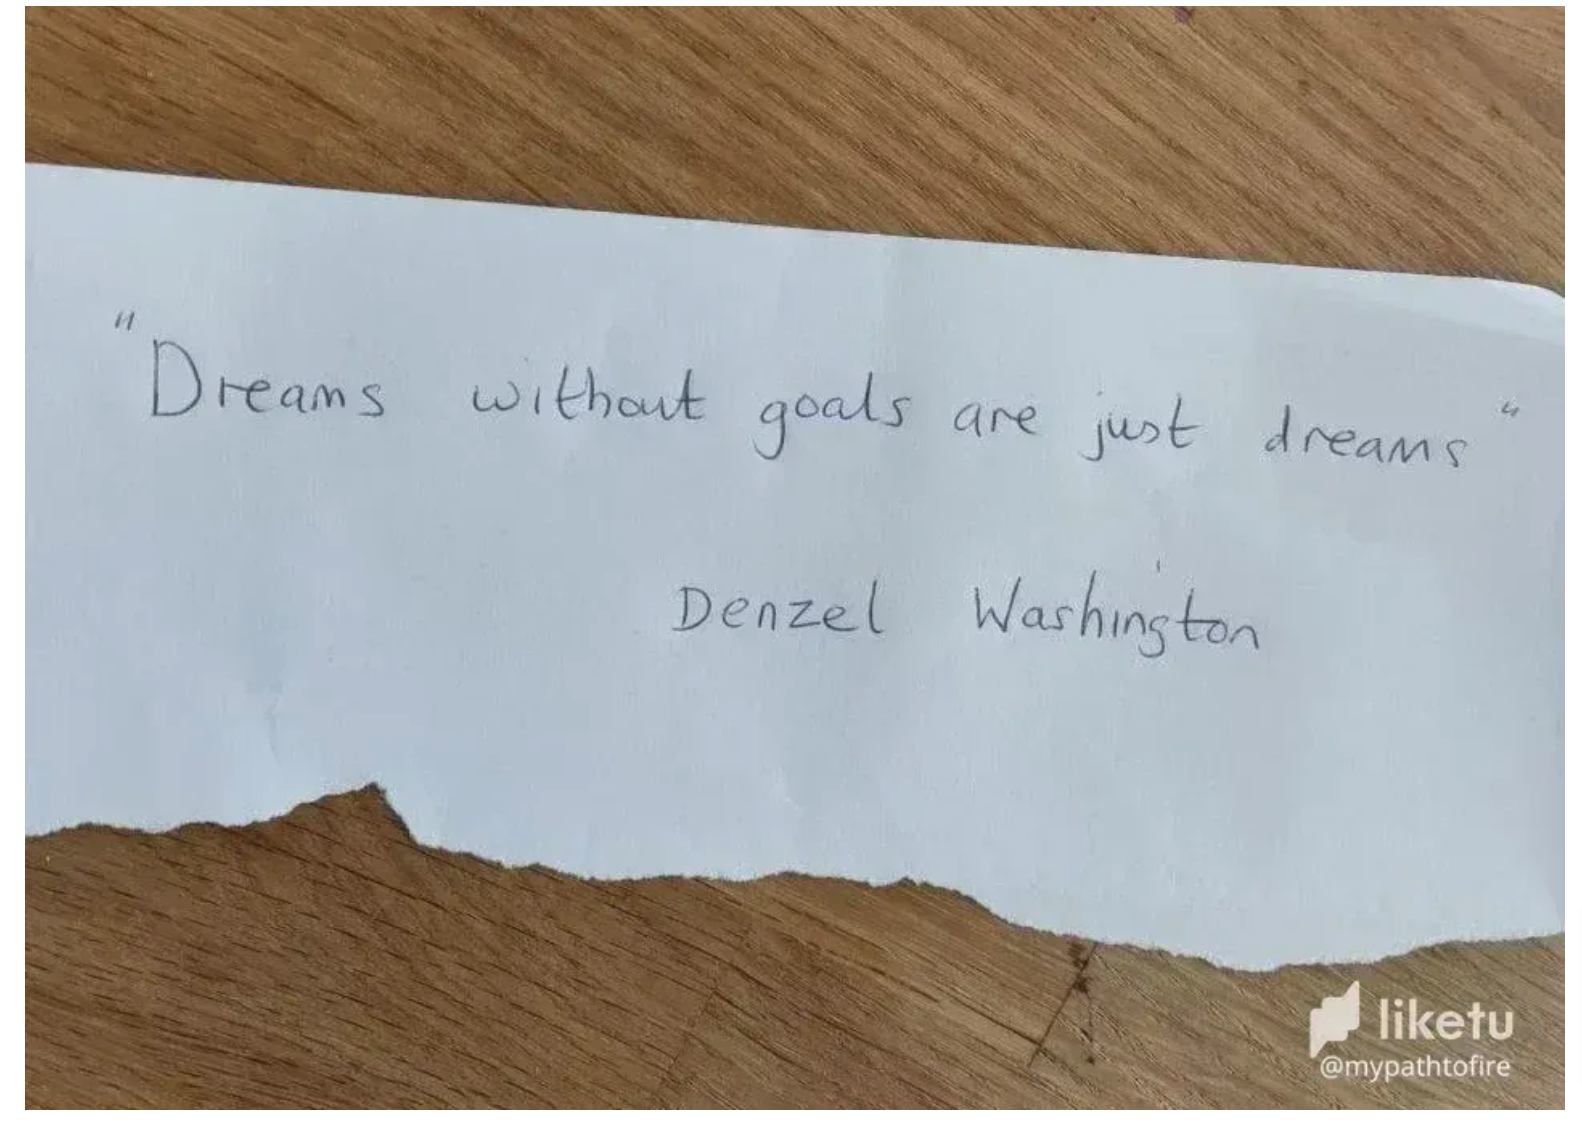 "Dreams without goals are just dreams"
Denzel Washington
liketu
@mypathtofire